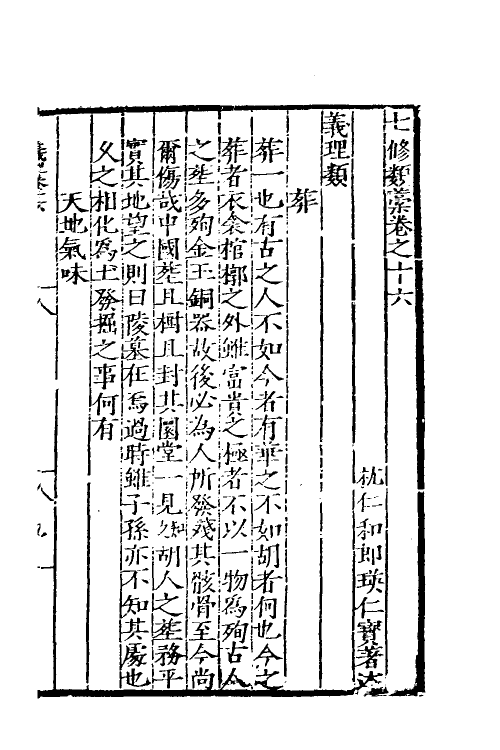 七修類藁卷之十六
杭仁和郎瑛仁寶著述
義理類
葬
葬一也有古之人不如今者有華之不如胡者何也今之
葬者衣衾棺槨之外雖富貴之極者不以一物為殉古人
之塟多殉金玉銅器故後必為人所發殘其骸骨至今尚
爾傷哉中國塟且樹且封其園堂一見知胡人之塟務平
實其地望之則曰陵墓在焉過時雖子孫亦不知其處也
久之相化為土發掘之事何有
天地氣味